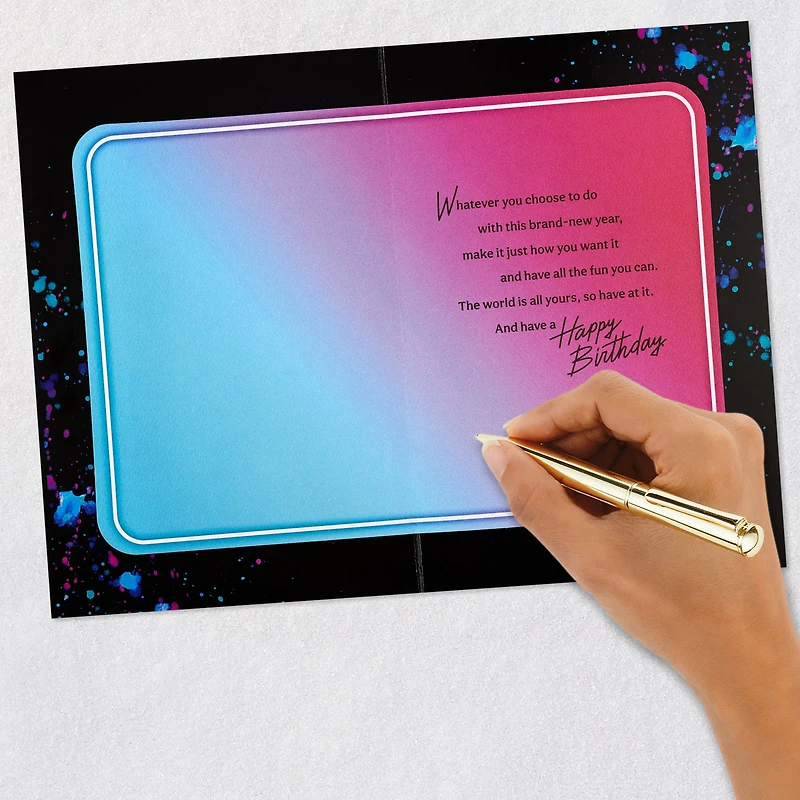 Whatever you choose to do
with this brand-new year,
make it just how you want it
and have all the fun you can.
The world is all yours, so have at it.
And have a Happy
Birthday.